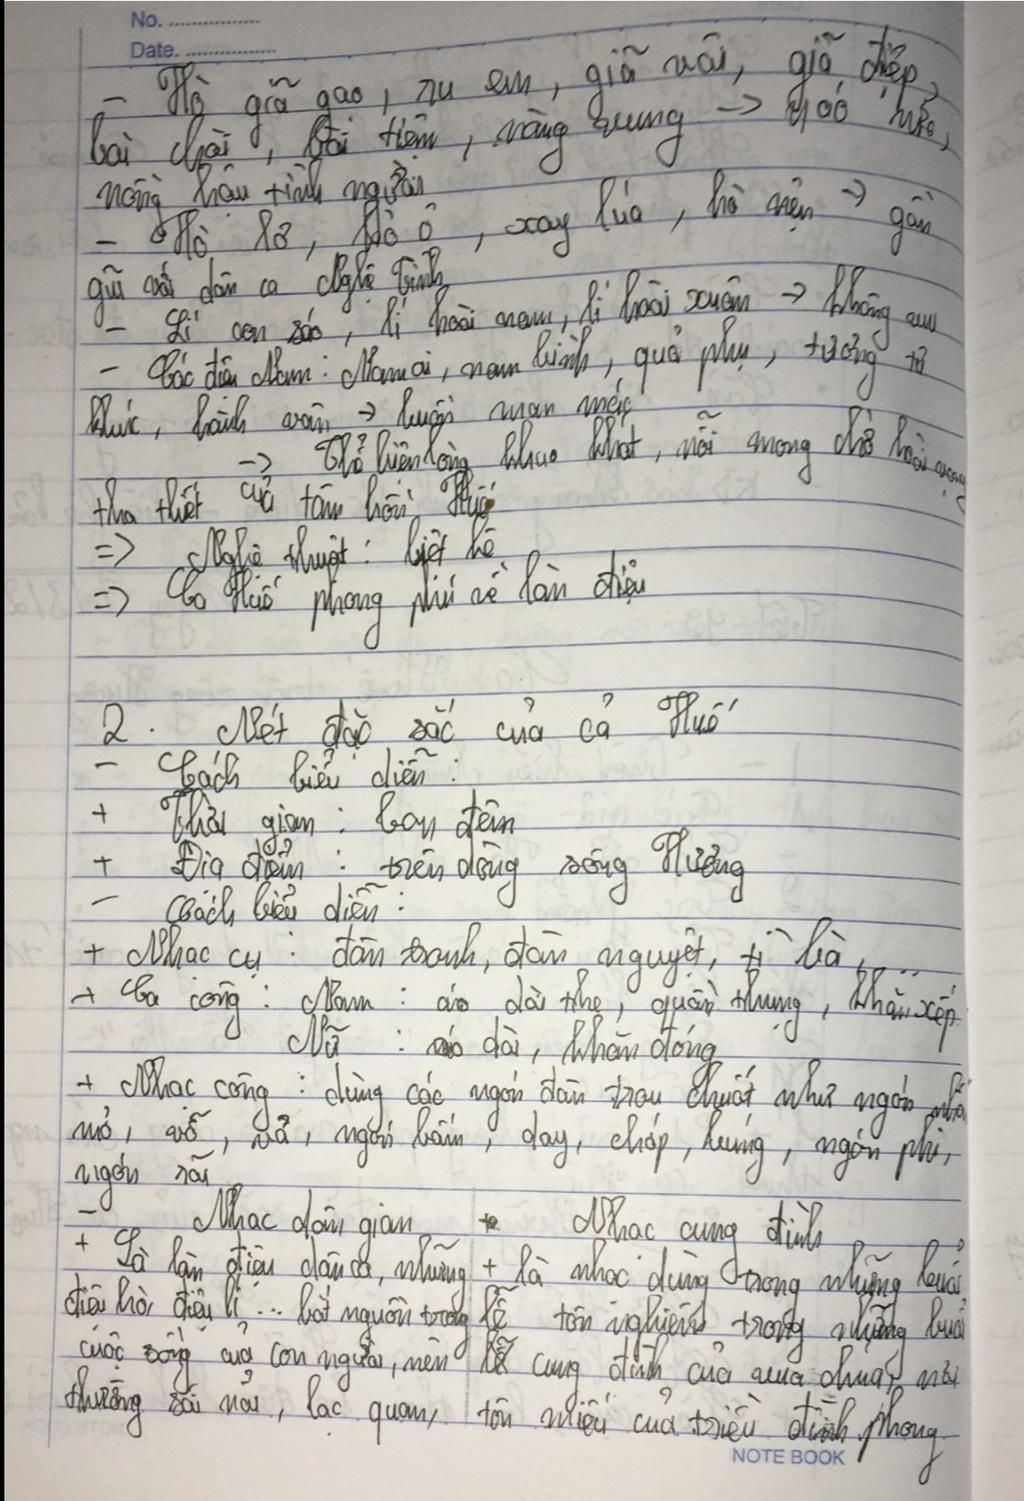 No. ................
Date. ................
- Hò giã gạo, ru em, giã vôi, giã điệp,
bài chòi, bài tiệm, nàng vung -> náo nức,
nồng hậu tình người
- Hò lơ, hò ô, xay lúa, hò nện -> gần
gũi với dân ca Nghệ Tĩnh
- Lí con sáo, lí hoài nam, lí hoài xuân -> không vui
- Các điệu Nam: Nam ai, nam bình, quả phụ, tương tư
khúc, hành vân -> buồn man mác
-> Thể hiện lòng khao khát, nỗi mong chờ hoài vọng
tha thiết của tâm hồn Huế
=> Nghệ thuật: liệt kê
=> Ca Huế phong phú về làn điệu
2. Nét đặc sắc của cả Huế
- Cách biểu diễn:
+ Thời gian: ban đêm
+ Địa điểm: trên dòng sông Hương
- Cách biểu diễn:
+ Nhạc cụ: đàn tranh, đàn nguyệt, tì bà,
+ Ca công: Nam: áo dài the, quần thụng, khăn xếp
Nữ: áo dài, khăn đóng
+ Nhạc công: dùng các ngón đàn trau chuốt như ngón nhấ
mổ, vỗ, vả, ngón bấm, day, chớp, búng, ngón phi,
ngón rãi
- Nhạc dân gian + Nhạc cung đình
+ Là làn điệu dân ca, những + là nhạc dùng trong những buổi
điệu hò, điệu lí... bắt nguồn trong lễ tôn nghiêm trong những buổi
cuộc sống của con người, nên lễ cung đình của vua chúa, nơi
thường sôi nổi, lạc quan, tôn miếu của triều đình phong
NOTE BOOK